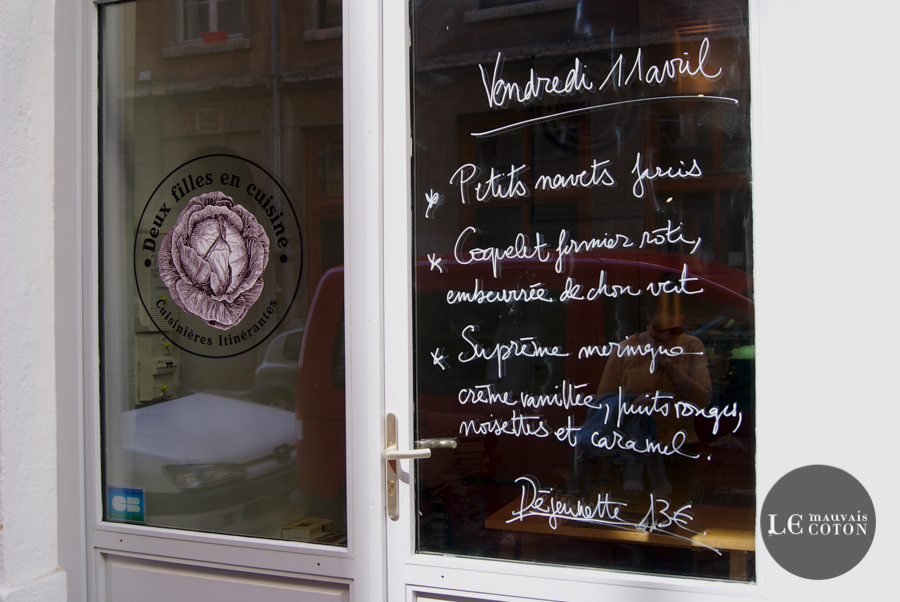 Deux filles en cuisine
Cuisinières Itinérantes
CB
Vendredi 11 avril
* Petits navets farcis
* Coquelet fermier rôti,
embeurrée de chou vert
* Suprême meringue
crème vanillée, fruits rouges,
noisettes et caramel.
Déjeunette 13€
LE mauvais
COTON